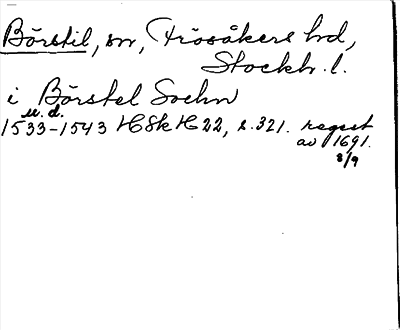 Börstil, sn, Frösåkers hd,
Stockh. l.
i Börstel Sochn
u. d.
1533-1543 HSk H 22, s. 321. regest
av 1691.
8/9